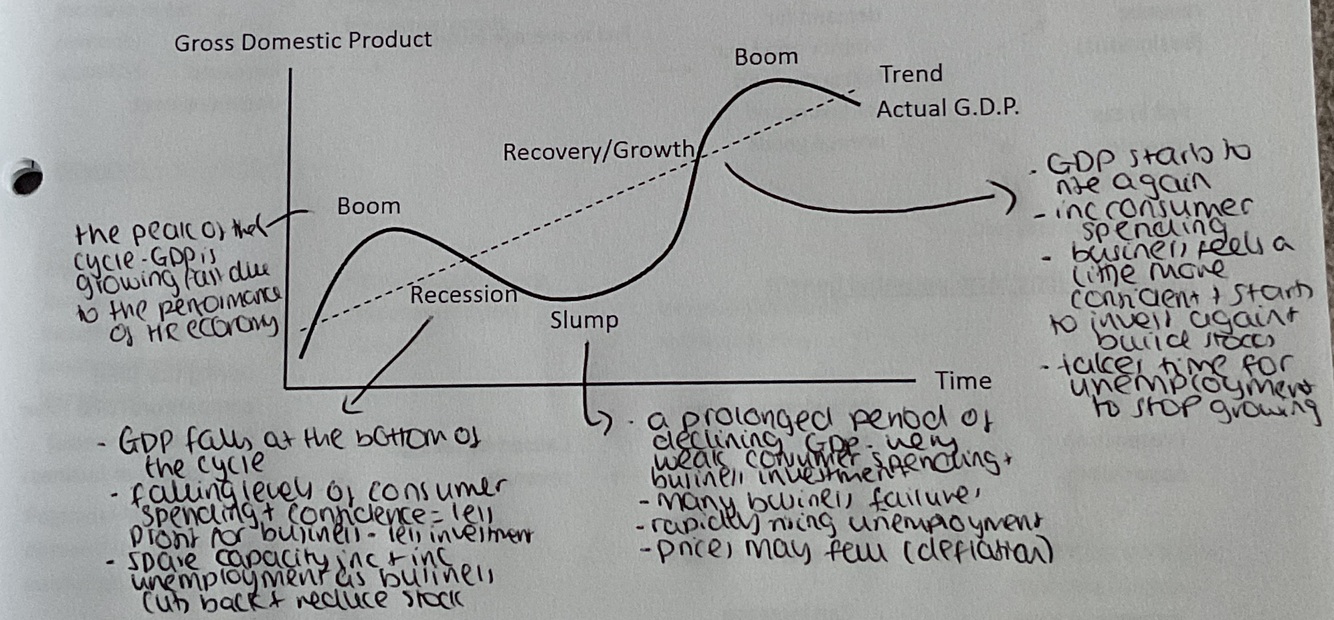 Gross Domestic Product
Boom
Trend
Actual G.D.P.
Recovery/Growth
Boom
Recession
Slump
Time
the peak of the
cycle - GDP is
growing fast due
to the performance
of the economy
- GDP falls at the bottom of
the cycle
- falling levels of consumer
spending + confidence = less
profit for business - less investment
- spare capacity inc + inc
unemployment as business
cuts back + reduce stock
- a prolonged period of
declining GDP - very
weak consumer spending +
business investment
- many business failures
- rapidly rising unemployment
- prices may fall (deflation)
- GDP starts to
rise again
- inc consumer
spending
- business feels a
little more
confident + starts
to invest again +
build stocks
- takes time for
unemployment
to stop growing